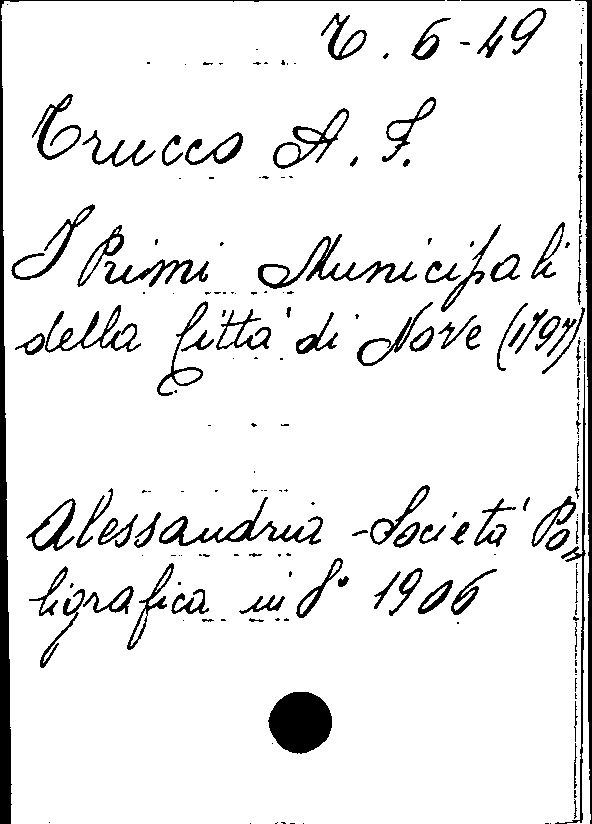 T. 6-49
Trucco A. F.
I Primi Municipali
della Città di Nove (1797)
Alessandria - Società Po„
ligrafica in 8° 1906